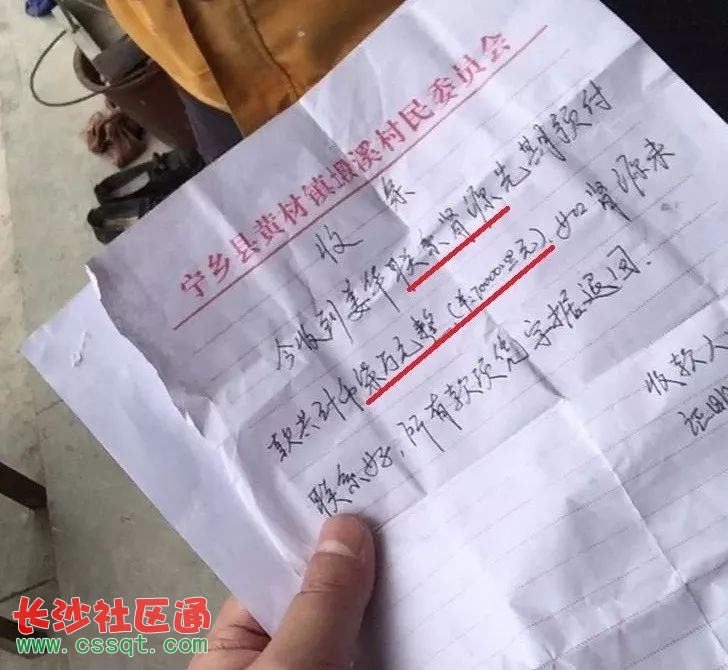 宁乡县黄材镇塅溪村民委员会
收条
今收到姜华联系肾源先期预付
款共计币柒万元整(¥:70000.00元).如肾源未
联系好,所有款项凭字据退回.
收款人
证明
长沙社区通
www.cssqt.com